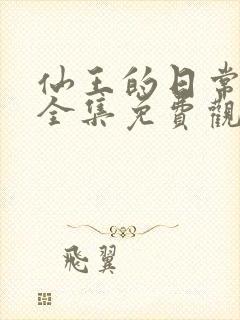 仙王的日常
全集免費觀
飛翼